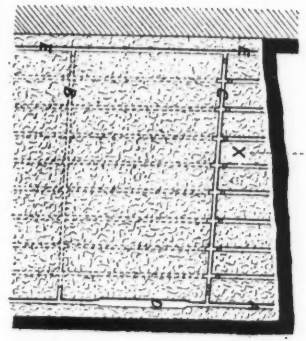 E
E
B
C
X
D